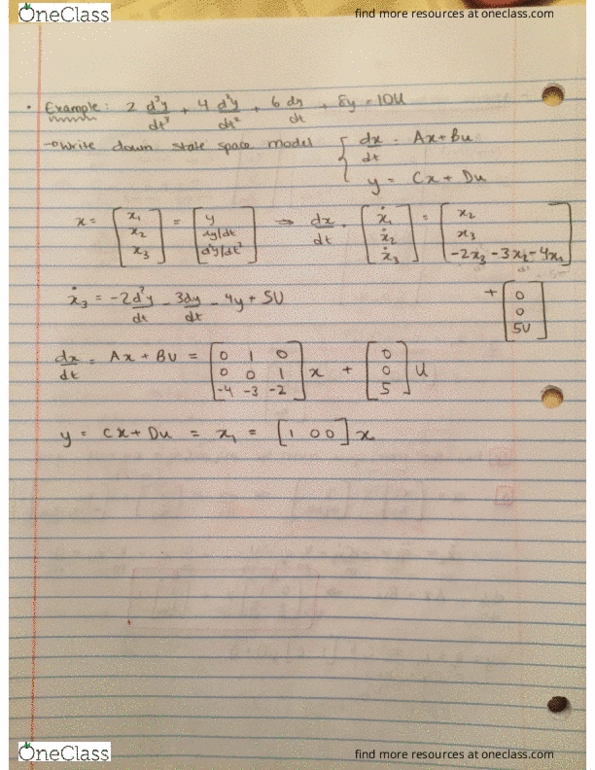 OneClass find more resources at oneclass.com
• Example: 2 d³y/dt³ + 4 d²y/dt² + 6 dy/dt + 8y = 10U
→ Write down state space model { dx/dt = Ax + Bu
y = Cx + Du
x = [x₁ x₂ x₃] = [y dy/dt d²y/dt²] ⇒ dx/dt = [ẋ₁ ẋ₂ ẋ₃] = [x₂ x₃ -2x₃-3x₂-4x₁]
+ [0 0 5U]
ẋ₃ = -2d²y/dt - 3dy/dt - 4y + 5U
dx/dt = Ax + BU = [0 1 0 0 0 1 -4 -3 -2] x + [0 0 5] U
y = Cx + Du = x₁ = [1 0 0] x
OneClass find more resources at oneclass.com